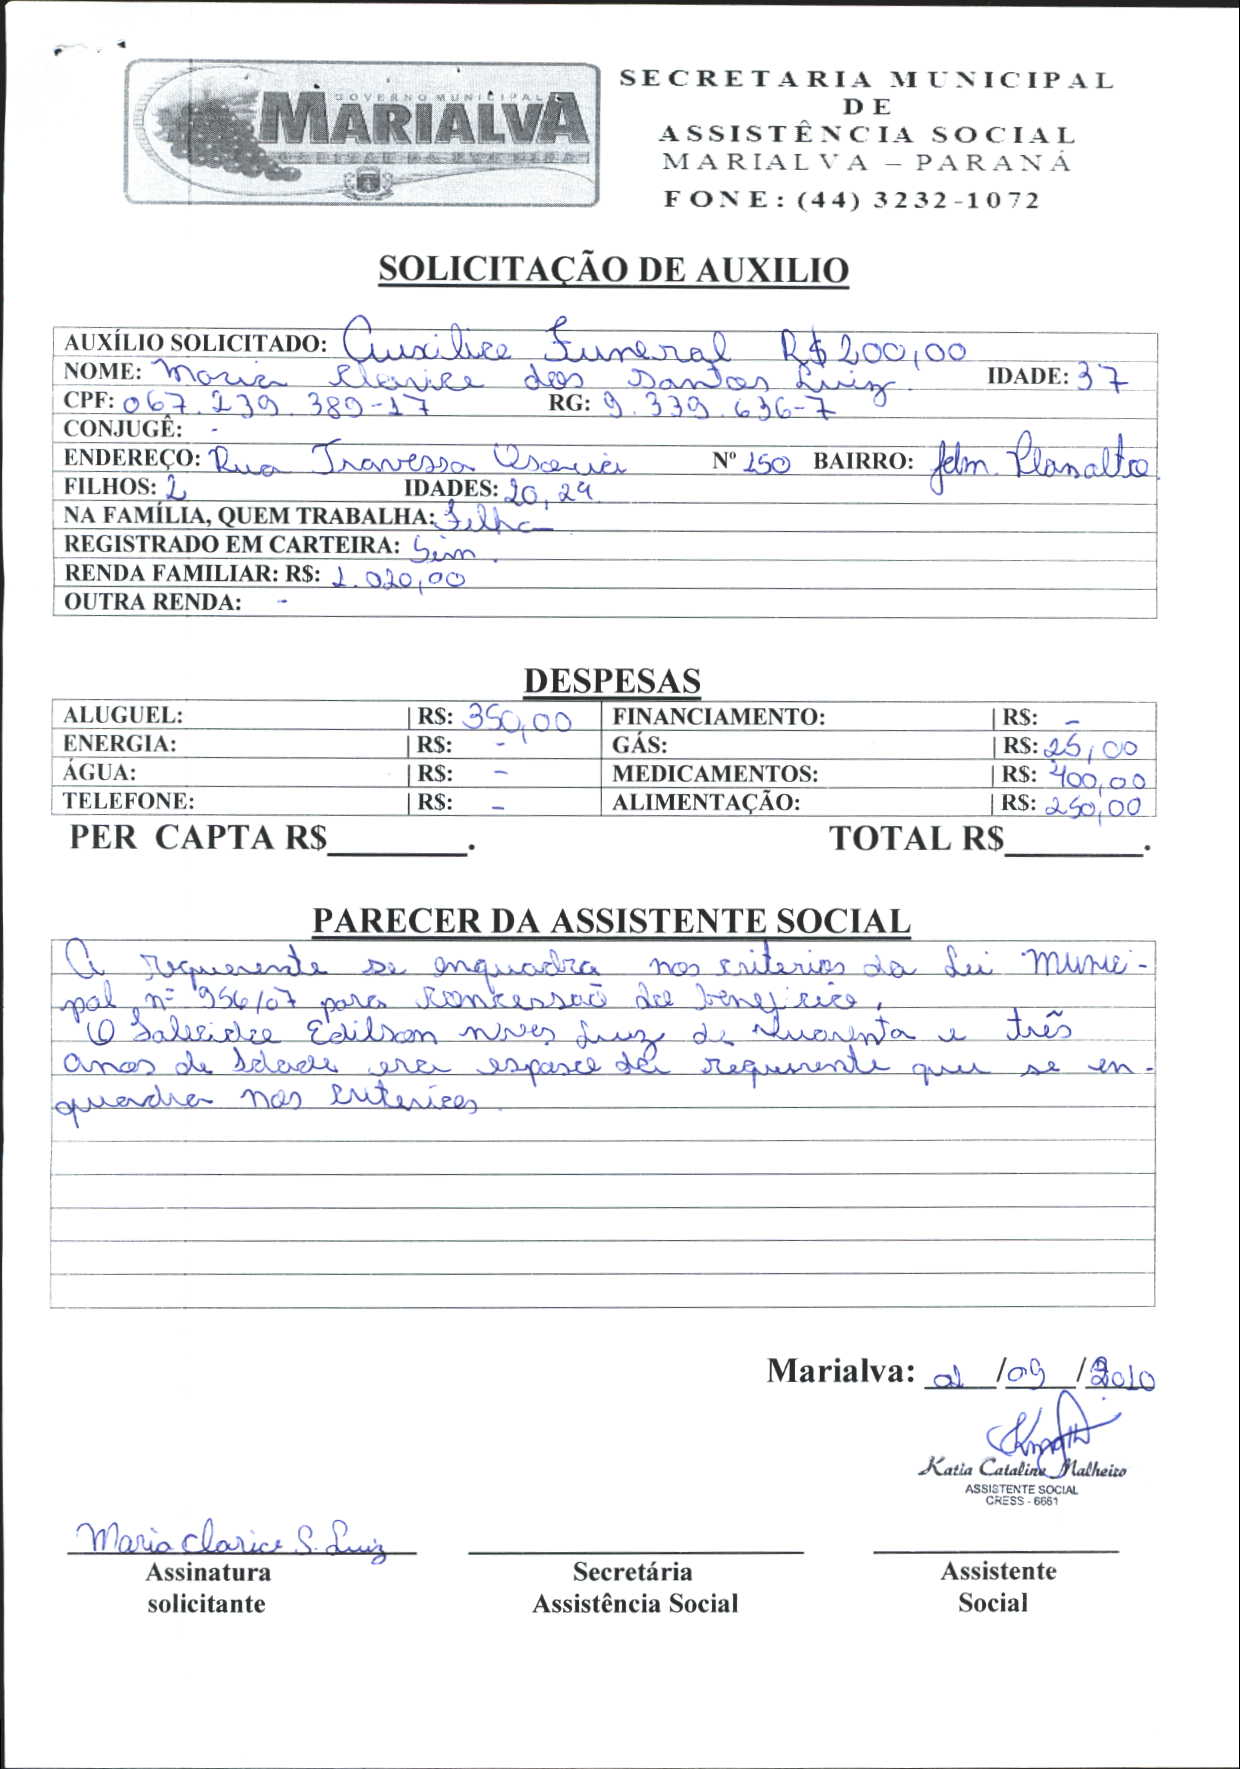 GOVERNO MUNICIPAL
MARIALVA
CAPITAL DA UVA FINA
SECRETARIA MUNICIPAL
DE
ASSISTÊNCIA SOCIAL
MARIALVA – PARANÁ
FONE: (44) 3232-1072
SOLICITAÇÃO DE AUXILIO
AUXÍLIO SOLICITADO: Auxilio Funeral R$ 200,00
NOME: Maria Clarice dos Santos Luiz. IDADE: 37
CPF: 067.239.389-17 RG: 9.339.636-7
CONJUGÊ: -
ENDEREÇO: Rua Travessa Nº 150 BAIRRO: Jdm. Planalto
FILHOS: 2 IDADES: 20, 24
NA FAMÍLIA, QUEM TRABALHA: Filha
REGISTRADO EM CARTEIRA: Sim.
RENDA FAMILIAR: R$: 1.020,00
OUTRA RENDA: -
DESPESAS
ALUGUEL: R$: 350,00 FINANCIAMENTO: R$: -
ENERGIA: R$: - GÁS: R$: 25,00
ÁGUA: R$: - MEDICAMENTOS: R$: 400,00
TELEFONE: R$: - ALIMENTAÇÃO: R$: 250,00
PER CAPTA R$_______. TOTAL R$_______.
PARECER DA ASSISTENTE SOCIAL
A requerente se enquadra nos criterios da Lei Munici-
pal nº 956/07 para concessaõ do beneficio,
O falecido Edilson Luiz de quarenta e três
anos de idade era esposo da requerente que se en-
quadra nos criterios
Marialva: 02/09/2010
Katia Catalina Malheiro
ASSISTENTE SOCIAL
CRESS - 6661
Maria Clarice S. Luiz
Assinatura Secretária Assistente
solicitante Assistência Social Social